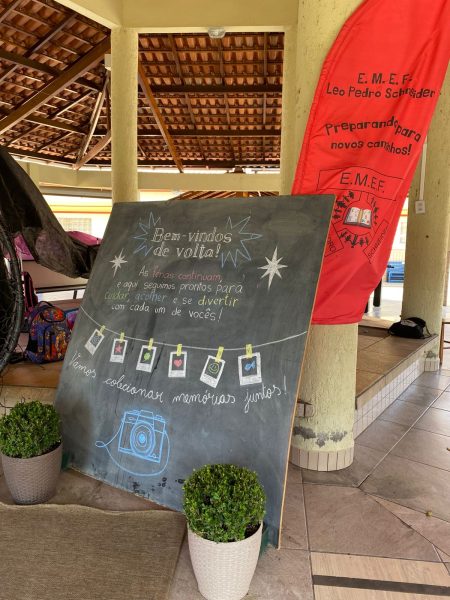 Bem-vindos
de volta!
As férias continuam,
e aqui seguimos prontos para
cuidar, acolher e se divertir
com cada um de vocês!
Vamos colecionar memórias juntos!
E. M. E. F.
Leo Pedro Schneider
Preparando para
novos caminhos!
E.M.E.F.